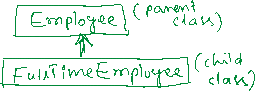 Employee (parent
class)
FullTimeEmployee (child
class)